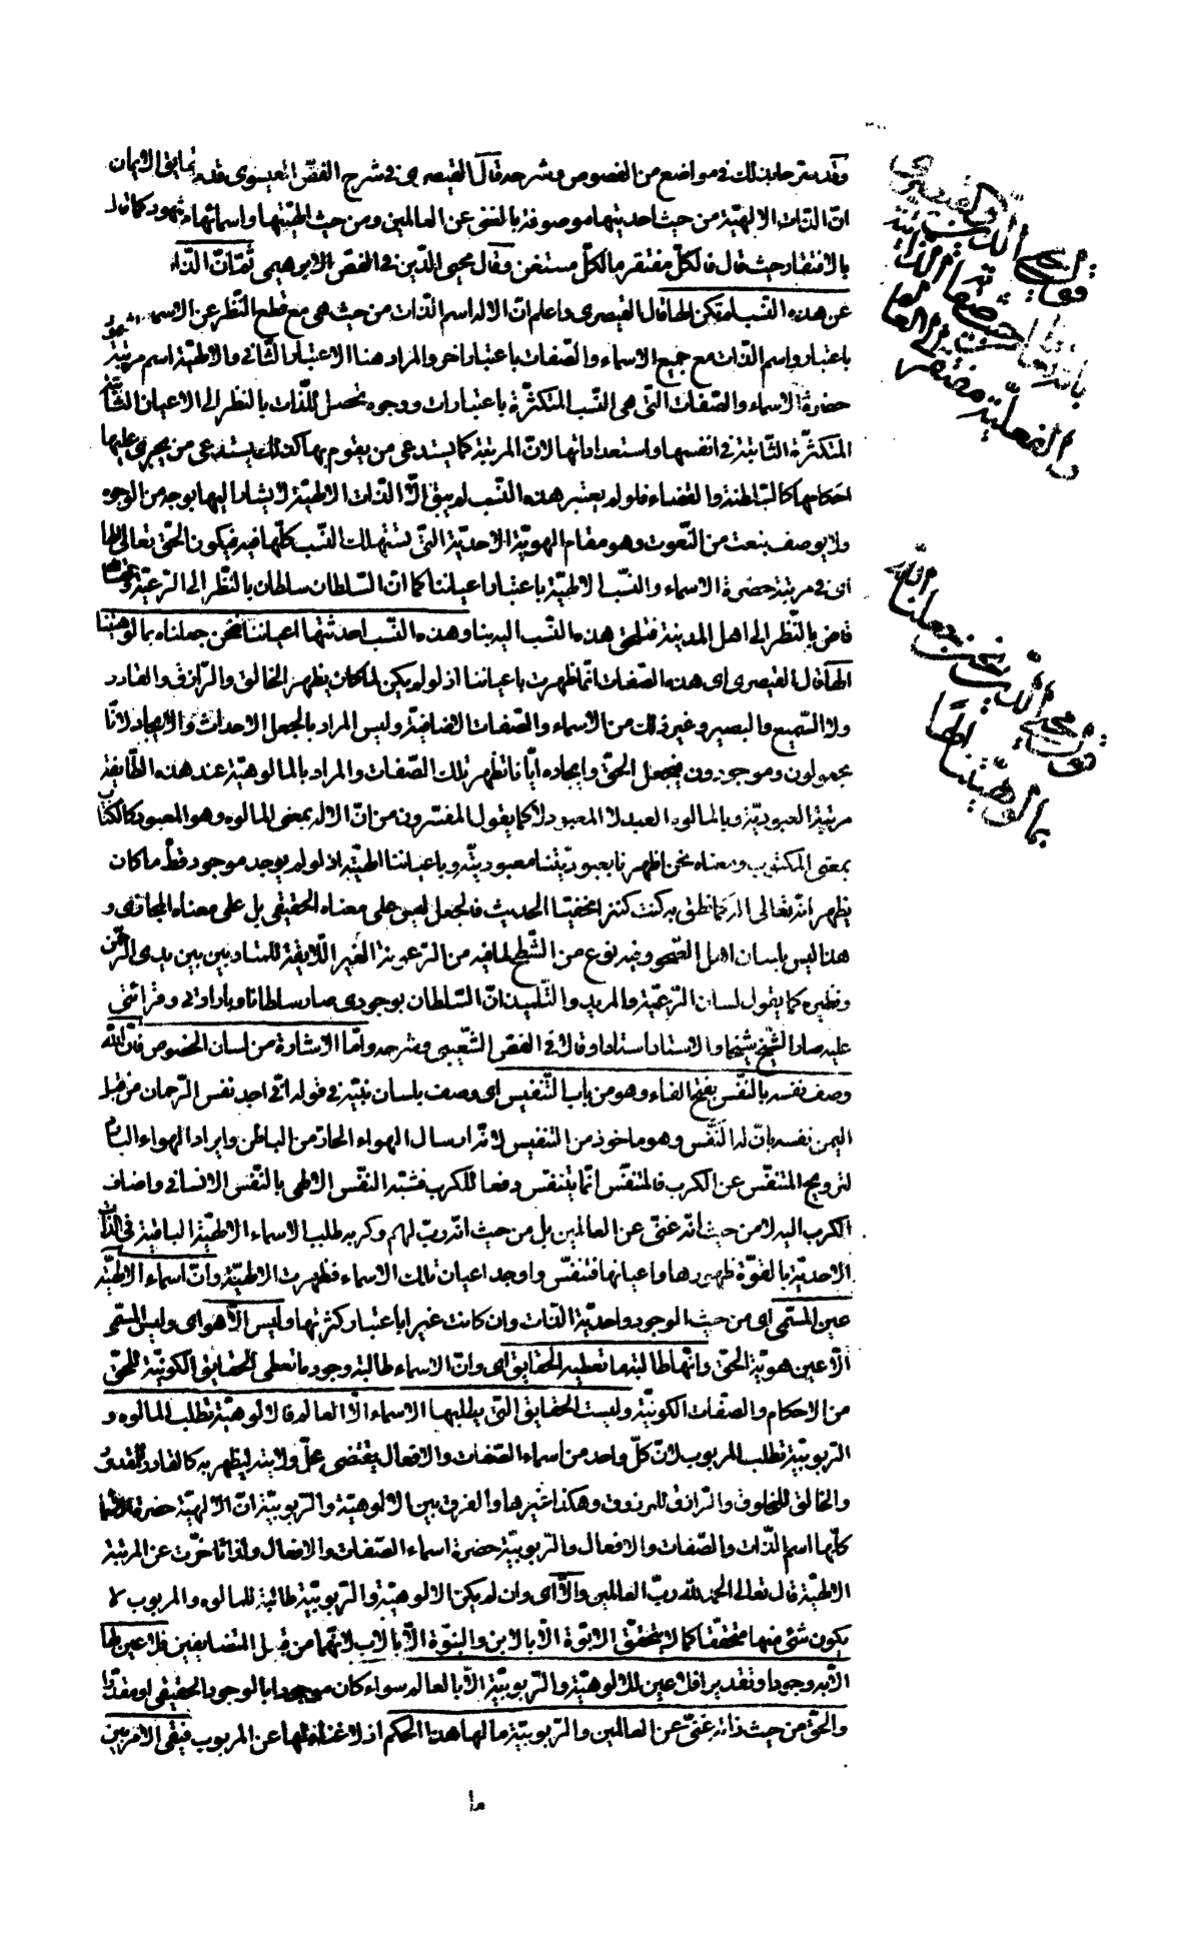 وقد صرحا بذلك في مواضع من الفصوص وشرحه قال القيصري في شرح الفصّ العيسوي
انّ الذات الالهيّة من حيث احديتها موصوفة بالغنى عن العالمين ومن حيث الهيّتها واسمائها
بالافتقار حيث قال فالكلّ مفتقر ما الكلّ مستغن وقال محيى الدّين في الفصّ الابراهيمى ثمّ انّ الذّات
عن هذه النّسب لم تكن الها قال القيصرى واعلم انّ الاله اسم الذّات من حيث هى مع قطع النّظر عن الاسماء
باعتبار واسم الذّات مع جميع الاسماء والصّفات باعتبار اخر والمراد هنا الاعتبار الثّانى والالهيّة اسم مرتبة
حضرة الاسماء والصّفات التّى هى النّسب المتكثّرة باعتبارات ووجوه تحصل للّذات بالنظر الى الاعيان الثّابتة
المتكثّرة الثّابتة في انفسها واستعداداتها لانّ المرتبة كما يستدعى من يقوم بها كذلك يستدعى من يجرى عليها
احكامها كالسّلطنة والقضاء فلو لم يعتبر هذه النّسب لم يبق الّا الذّات الالهيّة لا يشار اليها بوجه من الوجوه
ولا يوصف بنعت من النّعوت وهو مقام الهويّة الاحديّة التّى تستهلك النّسب كلّها فيه فيكون الحقّ تعالى الها
اى فى مرتبة حضرة الاسماء والنّسب الالهيّة باعتبار اعياننا كما انّ السّلطان سلطان بالنّظر الى الرّعيّة
قاض بالنّظر الى اهل المدينة فتلحق هذه النّسب اليه بنا وهذه النّسب احدثتها اعياننا فنحن جعلناه بمالوهيّتنا
الها قال القيصرى اى هذه الصّفات انّما ظهرت باعياننا اذ لو لم يكن لما كان يظهر الخالق والرّازق والقادر
ولا السّميع والبصير وغير ذلك من الاسماء والصّفات الاضافيّة وليس المراد بالجعل الاحداث والايجاد لانّا
مجعولون وموجودون بجعل الحقّ وايجاده ايّانا تظهر تلك الصّفات والمراد بالمالوهيّة عند هذه الطّايفة
مرتبة العبوديّة وبالمالوه العبد لا المعبود لا كما يقول المفسّرون من انّ الاله بمعنى المالوه وهو المعبود كالكتاب
بمعنى المكتوب ومعناه نحن اظهرنا بعبوديّتنا معبوديّته وباعياننا الهيّته اذ لو لم يوجد موجود قطّ ما كان
يظهر انّه تعالى اله كما نطق به كنت كنزا مخفيّا الحديث فالجعل ليس على معناه الحقيقى بل على معناه المجازى و
هذا ليس بلسان اهل الصّحو وفيه نوع من الشّطح لما فيه من الرّعونة الغير اللّايقة للمتادبين بين يدى الرّحمن
ونظيره كما يقول لسان الرّعيّة والمريد والتّلميذ انّ السّلطان بوجودى صار سلطانا وبارادتى وقرائتى
عليه صار الشّيخ شيخا والاستاد استادا وقال فى الفصّ الشّعيبى وشرحه وامّا الاشارة من لسان الخصوص فانّ اللّه
وصف نفسه بالنّفس بفتح الفاء وهو من باب التّنفيس اى وصف بلسان نبيّه فى قوله انّى اجد نفس الرّحمان من قبل
اليمن نفسه بانّ له النّفس وهو ماخوذ من التنفيس لانّه ارسال الهواء الحارّ من الباطن وايراد الهواء البارد
لترويح المتنفّس عن الكرب فالمتنفّس انّما يتنفّس دفعا للكرب فشبّه النّفس الالهى بالنّفس الانسانى واضاف
الكرب اليه لا من حيث انّه غنىّ عن العالمين بل من حيث انّه ربّ لهم وكربه طلب الاسماء الالهيّة الباقية فى الذّات
الاحديّة بالقوّة ظهورها واعيانها فتنفّس واوجد اعيان تلك الاسماء فظهرت الالهيّة وانّ اسماء الالهيّة
عين المسمّى اى من حيث الوجود واحديّة الذّات وان كانت غيرا باعتبار كثرتها وليس الّا هو اى وليس المسمّى
الّا عين هويّة الحقّ وانّها طالبة ما تعطيه الحقايق اى وانّ الاسماء طالبة وجود ما تعطى الحقايق الكونيّة للحقّ
من الاحكام والصفات الكونيّة وليست الحقايق التّى يطلبها الاسماء الّا العالم فالالوهيّة تطلب المالوه و
الرّبوبيّة تطلب المربوب لانّ كلّ واحد من اسماء الصّفات والافعال يقتضى محلّ ولايته ليظهر به كالقادر للمقدور
والخالق للمخلوق والرّازق للمرزوق وهكذا غيرها والفرق بين الالوهيّة والرّبوبيّة انّ الالهيّة حضرة الاسماء
كلّها اسم الذّات والصّفات والافعال والرّبوبيّة حضرة اسماء الصّفات والافعال ولذا تاخرّت عن المرتبة
الالهيّة قال تعالى الحمد للّه ربّ العالمين والّا اى وان لم يكن الالوهيّة والرّبوبيّة طالبة للمالوه والمربوب لا
يكون شئ منها متحققا كما لا يتحقّق الابوّة الّا بالابن والبنوّة الّا بالاب لانّهما من قبيل المتضايفين فلا عين لها
الّا به وجودا وتقديرا فلا عين للالوهيّة والرّبوبيّة الّا بالعالم سواء كان موجودا بالوجود الحقيقى او مقدّرا
والحقّ من حيث ذاته غنىّ عن العالمين والرّبوبيّة ما لها هذا الحكم اذ لا غناء لها عن المربوب فبقى الامر بين
ما
قول محيى الدّين والقيصرى
بانّ الذات من حيث صفاته الذاتيّة
والفعليّة مفتقر الى العالم
قول محيى الدّين نحن جعلنا اللّه
بمالوهيّتنا الهًا